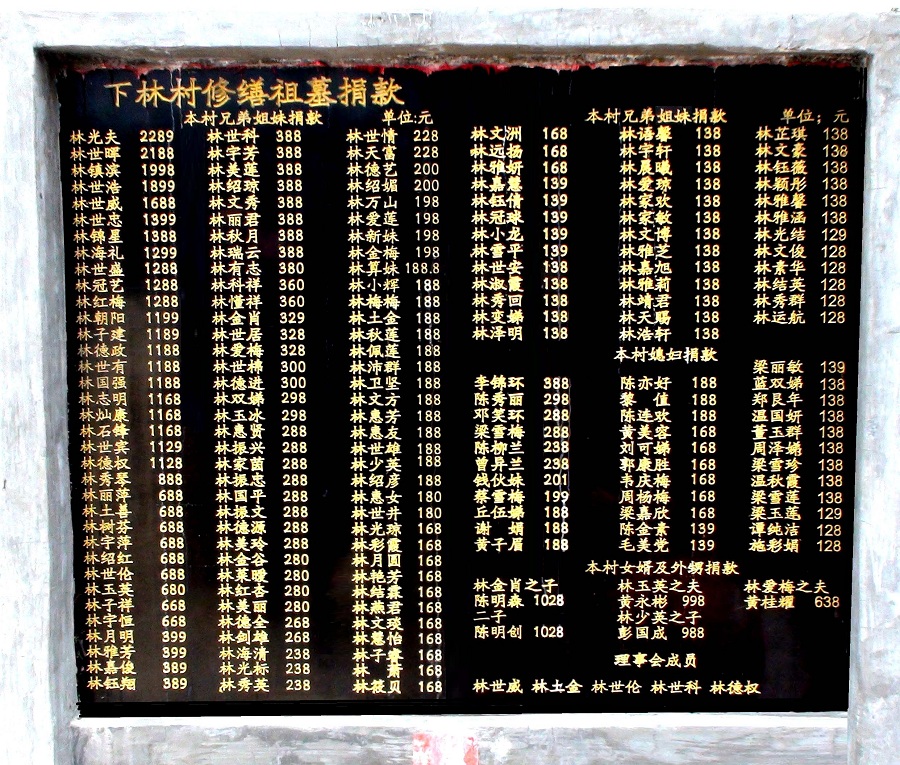 下林村修缮祖墓捐款
本村兄弟姐妹捐款 单位:元
本村兄弟姐妹捐款 单位；元
林光夫 2289 林世科 388 林世情 228 林文洲 168 林语馨 138 林芷琪 138
林世晖 2188 林宇芳 388 林天富 228 林远扬 168 林宇轩 138 林文豪 138
林镇滨 1998 林美莲 388 林德艺 200 林雅妍 168 林晨曦 138 林钰薇 138
林世浩 1899 林绍琼 388 林绍媚 200 林嘉慧 139 林爱琼 138 林颖彤 138
林世威 1688 林文秀 388 林万山 198 林钰倩 139 林家欢 138 林雅馨 138
林世忠 1399 林丽君 388 林爱莲 198 林冠球 139 林家敏 138 林雅涵 138
林锦星 1388 林秋月 388 林新妹 198 林小龙 139 林文博 138 林光结 129
林海礼 1299 林瑞云 388 林金梅 198 林雪平 139 林雅芝 138 林文俊 128
林世盛 1288 林有志 380 林算妹 188.8 林世安 138 林嘉旭 138 林素华 128
林冠艺 1288 林科祥 360 林小辉 188 林淑霞 138 林雅莉 138 林结英 128
林红梅 1288 林懂祥 360 林梅梅 188 林秀回 138 林靖君 138 林秀群 128
林朝阳 1199 林金肖 329 林土金 188 林变娣 138 林天赐 138 林运航 128
林子建 1189 林世居 328 林秋莲 188 林泽明 138 林浩轩 138
林德政 1188 林爱梅 328 林佩莲 188
本村媳妇捐款
林世有 1188 林世棉 300 林沛群 188 梁丽敏 139
林国强 1188 林德进 300 林卫坚 188 李锦环 388 陈亦好 188 蓝双娣 138
林志明 1168 林双娣 298 林文方 188 陈秀丽 298 黎 值 188 郑艮年 138
林灿康 1168 林玉冰 298 林惠芳 188 邓笑环 288 陈连欢 188 温国妍 138
林石锋 1168 林惠贤 288 林惠友 188 梁雪梅 288 黄美容 168 董玉群 138
林世宾 1129 林振兴 288 林世雄 188 陈柳兰 238 刘可娣 168 周泽娣 138
林德权 1128 林家茵 288 林少英 188 曾昇兰 238 郭康胜 168 梁雪珍 138
林秀琴 888 林振忠 288 林绍彦 188 钱伙妹 201 韦庆梅 168 温秋霞 138
林丽萍 688 林国平 288 林惠女 180 蔡雪梅 199 周杨梅 168 梁雪莲 138
林土善 688 林振文 288 林世井 180 丘伍娣 188 梁嘉欣 168 梁玉莲 129
林树芬 688 林德源 288 林光琼 168 谢 娟 188 陈金素 139 谭纯洁 128
林宇萍 688 林美玲 288 林彩霞 168 黄子眉 188 毛美党 139 施彩娟 128
林绍红 688 林金谷 280 林月圆 168
本村女婿及外甥捐款
林世伦 688 林菜暖 280 林艳芳 168 林金肖之子 林玉英之夫 林爱梅之夫
林玉英 680 林红杏 280 林结霖 168 陈明森 1028 黄永彬 998 黄桂耀 638
林子祥 668 林美丽 280 林燕君 168 二子 林少英之夫
林宇恒 668 林德全 268 林文瑛 168 陈明创 1028 彭国成 988
林月明 399 林剑雄 268 林慧怡 168
林雅芳 399 林海清 238 林子睿 168
理事会成员
林嘉俊 389 林光标 238 林 萧 168
林钰翔 389 林秀英 238 林筱贝 168 林世威 林土金 林世伦 林世科 林德权